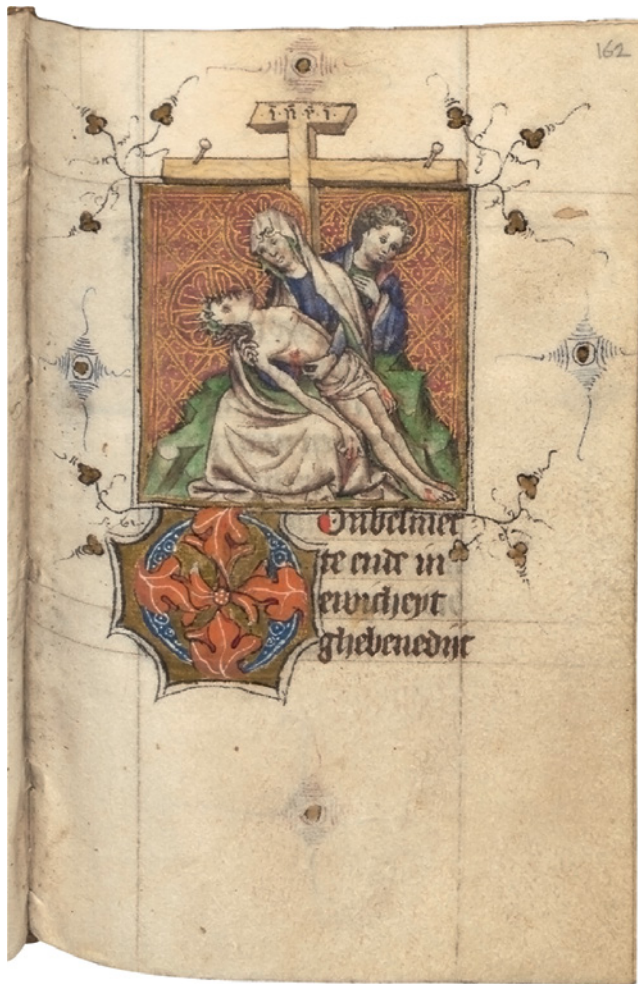 162
·i·n·r·i·
O Onbesmet
te ende in
ewicheyt
ghebenedijt